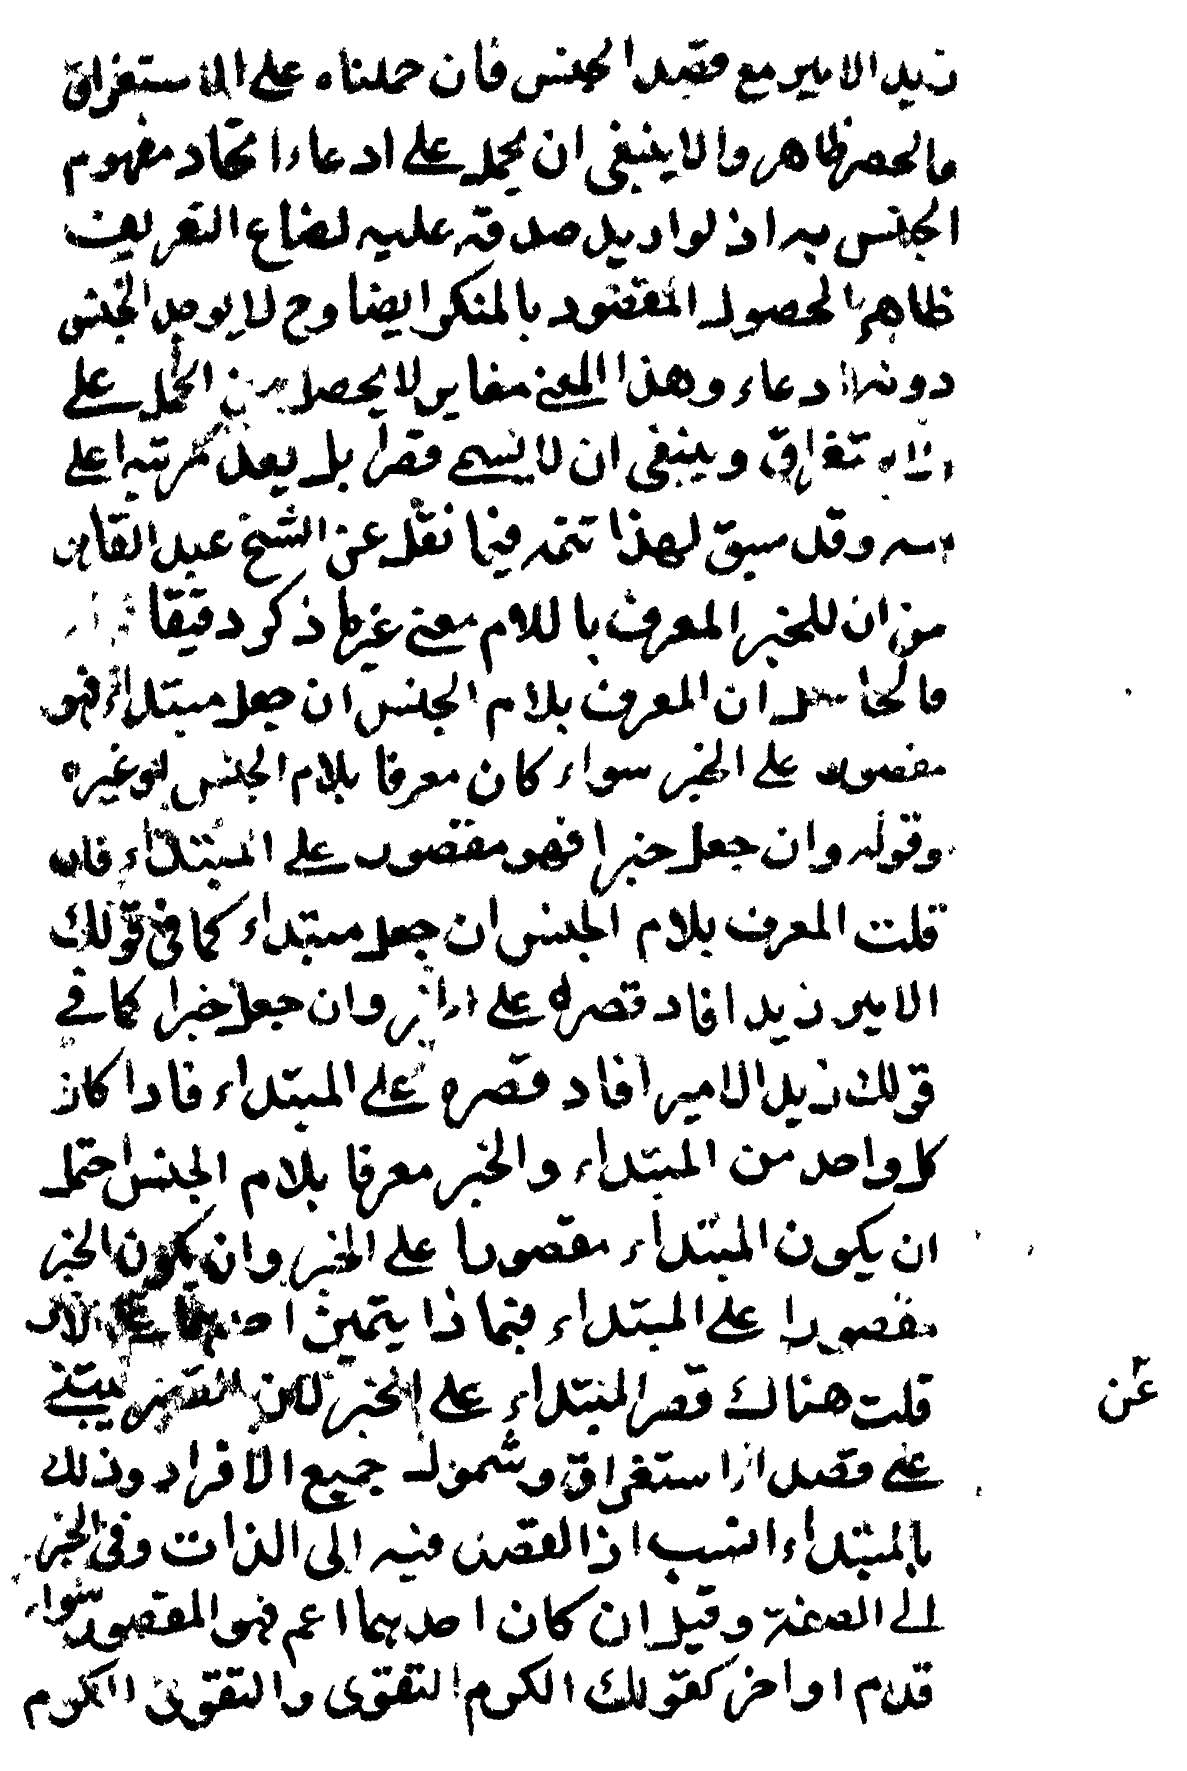 زيد الامير مع قصد الجنس فان حملناه على الاستغراق
فالحصر ظاهر والا ينبغي ان يحمل على ادعاء اتحاد مفهوم
الجنس به اذ لو اريد صدقه عليه لضاع التعريف
ظاهرا لحصول المقصود بالمنكر ايضا وح لا يوجد الجنس
دونه ادعاء وهذا المعنى مغاير لا يحصل من الحمل على
الاستغراق وينبغي ان لا يسمى قصرا بل يعد مرتبة اعلى
منه وقد سبق لهذا تتمة فيما نقل عن الشيخ عبد القاهر
من ان للخبر المعرف باللام معنى غير ما ذكر دقيقا
فالحاصل ان المعرف بلام الجنس ان جعل مبتداء فهو
مقصور على الخبر سواء كان معرفا بلام الجنس او غيره
وقوله وان جعل خبرا فهو مقصور على المبتداء فان
قلت المعرف بلام الجنس ان جعل مبتداء كما في قولك
الامير زيد افاد قصره على وان جعل خبرا كما في
قولك زيد الامير افاد قصره على المبتداء فاذا كان
كل واحد من المبتداء والخبر معرفا بلام الجنس احتمل
ان يكون المبتداء مقصورا على الخبر وان يكون الخبر
مقصورا على المبتداء فبماذا يتميز احدهما عن الاخر
قلت هناك قصر المبتداء على الخبر لان القصر يبتنى
على قصد الاستغراق وشمول جميع الافراد وذلك
بالمبتداء انسب اذ القصد فيه الى الذات وفي الخبر
الى الصفة وقيل ان كان احدهما اعم فهو المقصور سواء
قدم او اخر كقولك الكرم التقوى والتقوى الكرم
عن